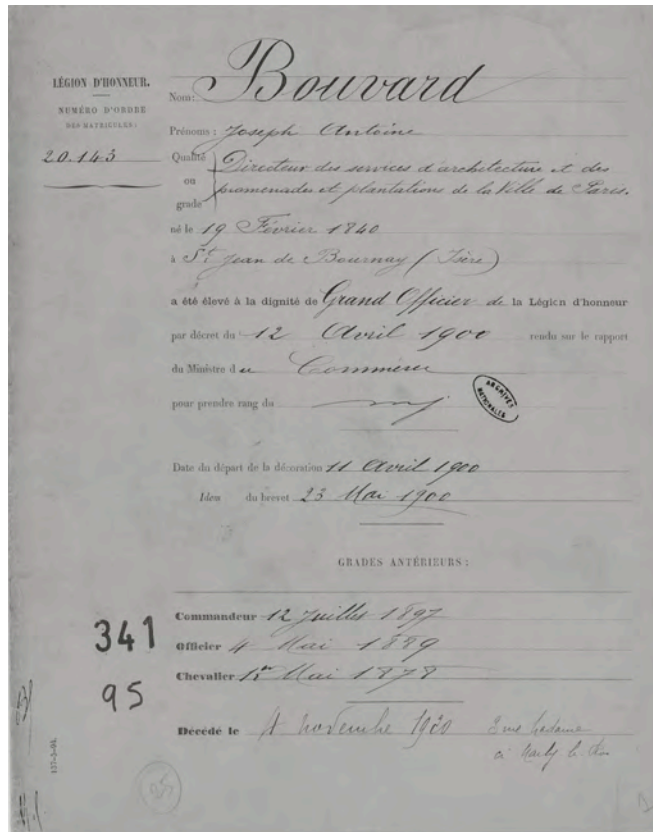 LÉGION D'HONNEUR.
NUMÉRO D'ORDRE
DES MATRICULES:
20.143
Nom: Bouvard
Prénoms : Joseph Antoine
Qualité ou grade Directeur des services d'architecture et des
promenades et plantations de la Ville de Paris.
né le 19 Février 1840
à St Jean de Bournay (Isère)
a été élevé à la dignité de Grand Officier de la Légion d'honneur
par décret du 12 Avril 1900 rendu sur le rapport
du Ministre du Commerce
pour prendre rang du
ARCHIVES NATIONALES
Date du départ de la décoration 11 Avril 1900
Idem du brevet 23 Mai 1900
GRADES ANTÉRIEURS :
Commandeur 12 Juillet 1897
Officier 4 Mai 1889
Chevalier 1er Mai 1878
341
95
Décédé le novembre 1920 rue Madame
à Marly le Roi
137-3-04.